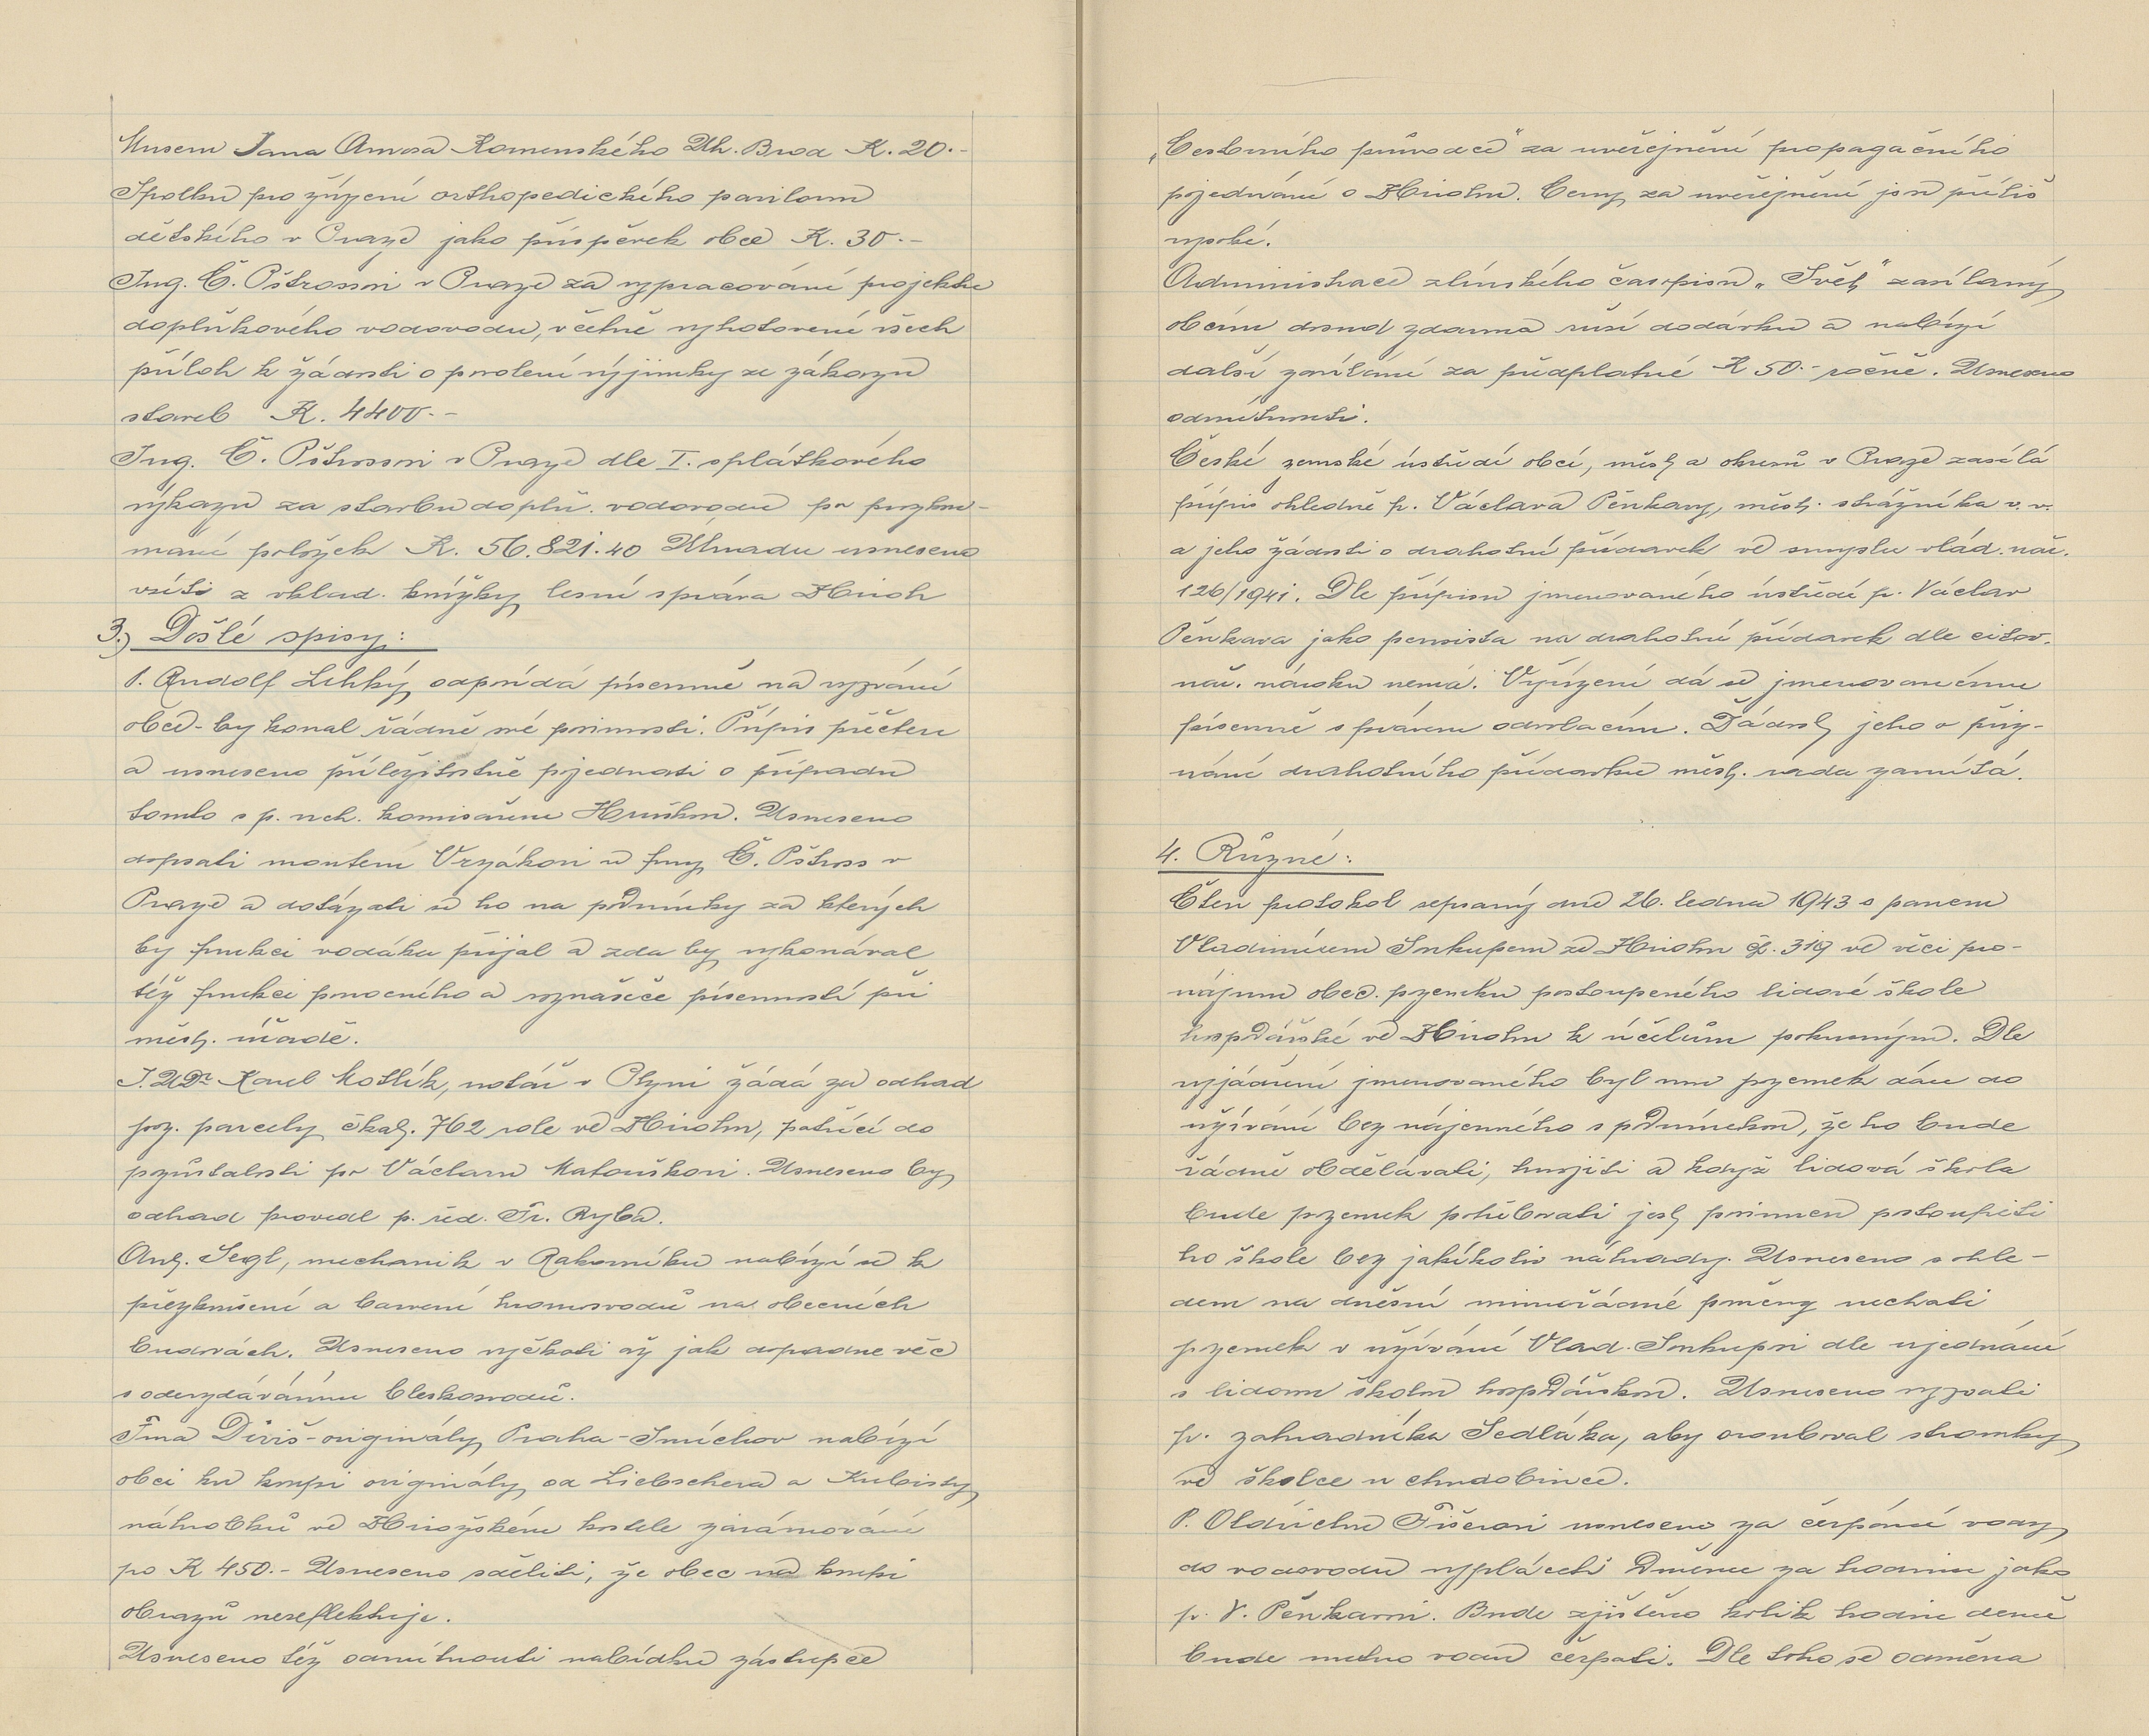 Museu Jana Amosa Komenského Uh. Brod K. 20.-
Spolku pro zřízení orthopedického pavilonu
dětského v Praze jako příspěvek obce K. 30.-
Ing. Č. Pštrossovi v Praze za vypracování projektu
doplňkového vodovodu, včetně vyhotovení všech
příloh k žádosti o povolení výjimky ze zákazu
staveb K. 4400.-
Ing. Č. Pštrossovi v Praze dle I. splátkového
výkazu za stavbu doplň. vodovodu po przkou-
mání položek K. 56.821.40 Úhradu usneseno
vzíti z vklad. knížky lesní správa Hůrch
3.) Došlé spisy:
P. Rudolf Lehký odpovídá písemně na vyzvání
obce - by konal řádně své povinnosti. Přípis přečten
a usneseno příležitostně pojednati o případu
tomto s p. vch. komisařem Hruškou. Usneseno
dopsati montéru Vrzákovi u fmy Č. Pštross v
Praze a dotázati se ho na podmínky za kterých
by funkci vodáka přijal a zda by vykonával
též funkci pomocného a roznašeče písemností při
měst. úřadě.
J.UDr Karel Motlík, notář v Plzni žádá za odhad
poz. parcely čkat. 762 role ve Hůrchu, patřící do
pozůstalosti po Václavu Matouškovi. Usneseno by
odhad provedl p. řed. Fr. Ryba.
Ant. Šegl, mechanik v Rakovníku nabízí se k
přezkoušení a barvení hromosvodů na obecních
budovách. Usneseno vyčkati až jak dopadne věc
s odevzdáváním bleskosvodů.
Fma Diviš - originály, Praha - Smíchov nabízí
obci ku koupi originály od Liebschera a Kubisty
náhrobků ve kostele zarámované
po K 450.- Usneseno sděliti, že obec na koupi
obrazů nereflektuje.
Usneseno též odmítnouti nabídku zástupce
„Cestovního průvodce" za uveřejnění propagačního
pojednání o Hůrchu. Ceny za uveřejnění jsou příliš
vysoké.
Administrace zlínského časopisu „Svět" zasílaný
obcím dosud zdarma ruší dodávku a nabízí
další zasílání za předplatné K 50.- ročně. Usneseno
odmítnouti.
České zemské ústředí obcí, měst a okresů v Praze zasílá
přípis ohledně p. Václava Pěnkavy, měst. strážníka v. v.
a jeho žádosti o drahotní přídavek ve smyslu vlád. nař.
126/1941. Dle přípisu jmenovaného ústředí p. Václav
Pěnkava jako pensista na drahotní přídavek dle citov.
nař. nároku nemá. Vyřízení dá se jmenovanému
písemně s právem odvolacím. Žádost jeho o přiz-
nání drahotního přídavku měst. rada zamítá.
4. Různé:
Čten protokol sepsaný dne 26. ledna 1943 s panem
Vladimírem Soukupem ze Hůrchu čp. 319 ve věci pro-
nájmu obec. pozemku postoupeného lidové škole
hospodářské ve Hůrchu k účelům pokusným. Dle
vyjádření jmenovaného byl mu pozemek dán do
užívání bez nájemného s podmínkou, že ho bude
řádně obdělávati, hnojiti a když lidová škola
bude pozemek potřebovati jest povinnen postoupiti
ho škole bez jakékoliv náhrady. Usneseno s ohle-
dem na dnešní mimořádné poměry nechati
pozemek v užívání Vlad. Soukupovi dle ujednání
s lidovou školou hospodářskou. Usneseno vyzvati
p. zahradníka Sedláka, aby orouboval stromky
ve školce u chudobince.
P. Oldřichu Fišerovi usneseno za čerpání vody
do vodovodu vypláceti odměnu za hodinu jako
p. V. Pěnkavovi. Bude zjištěno kolik hodin denně
bude nutno vodu čerpati. Dle toho se odměna